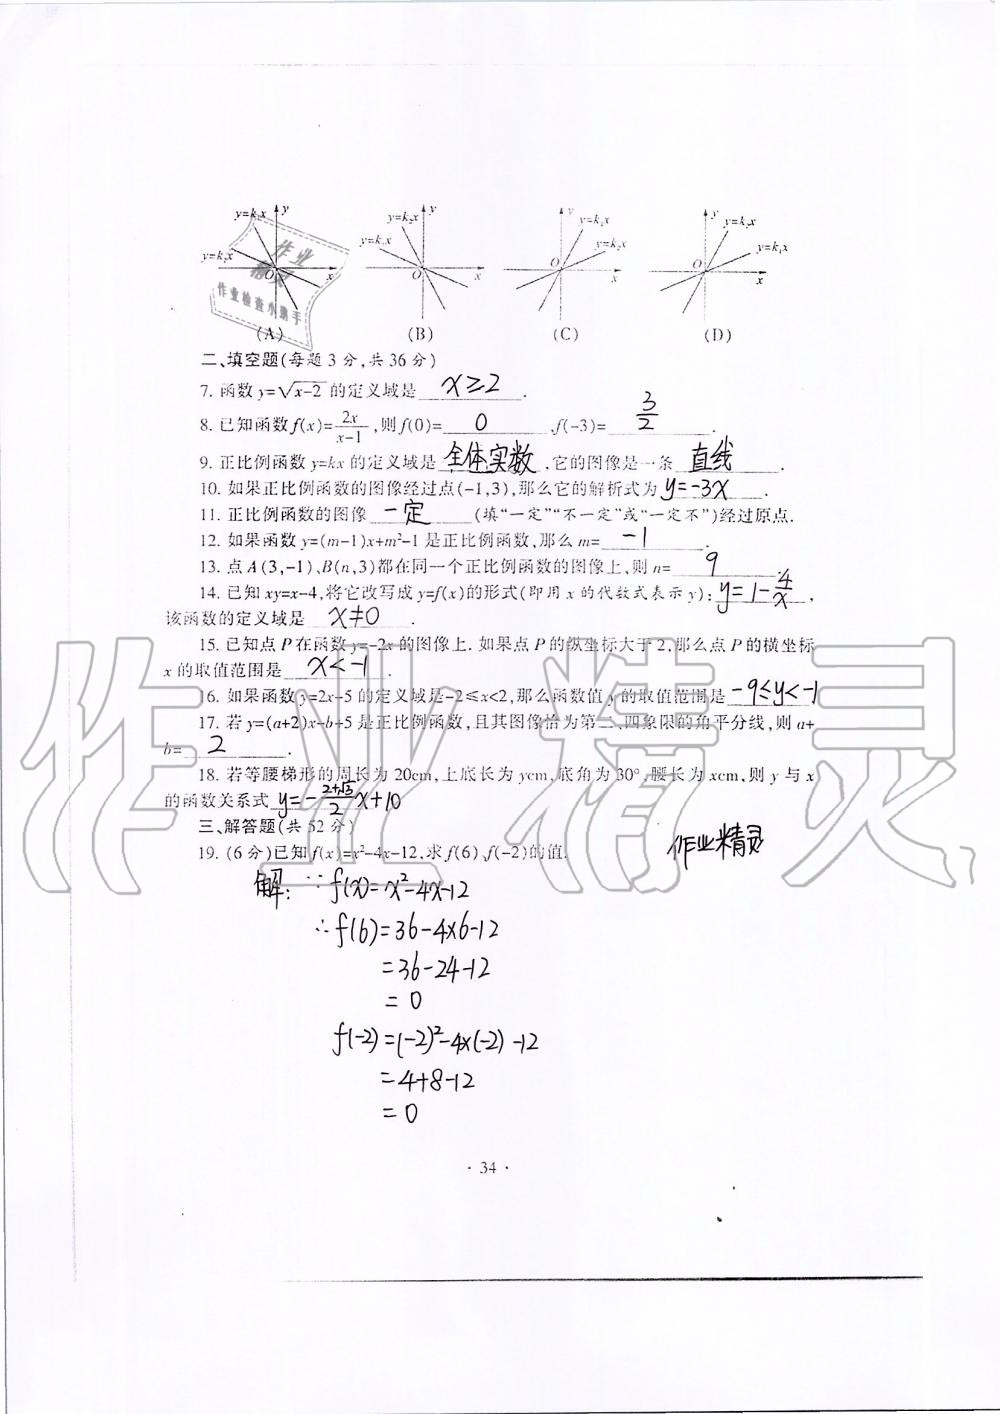 y=k₁x y
y=k₂x
O x
作业
精灵
作业检查小助手
(A)
y=k₂x y
y=k₁x
O x
(B)
y y=k₁x
y=k₂x
O x
(C)
y y=k₂x
y=k₁x
O x
(D)
二、填空题(每题3分,共36分)
7. 函数y=√x-2的定义域是 x≥2 .
8. 已知函数f(x)=2x/x-1,则f(0)= 0 、f(-3)= 3/2 .
9. 正比例函数y=kx的定义域是 全体实数 .它的图像是一条 直线 .
10. 如果正比例函数的图像经过点(-1,3),那么它的解析式为 y=-3x .
11. 正比例函数的图像 一定 (填“一定”“不一定”或“一定不”)经过原点.
12. 如果函数y=(m-1)x+m²-1是正比例函数,那么m= -1 .
13. 点A(3,-1)、B(n,3)都在同一个正比例函数的图像上,则n= 9 .
14. 已知xy=x-4,将它改写成y=f(x)的形式(即用x的代数式表示y): y=1-4/x ,
该函数的定义域是 x≠0 .
15. 已知点P在函数y=-2x的图像上. 如果点P的纵坐标大于2,那么点P的横坐标
x的取值范围是 x<-1 .
16. 如果函数y=2x-5的定义域是-2≤x<2,那么函数值y的取值范围是 -9≤y<-1
17. 若y=(a+2)x-b+5是正比例函数,且其图像恰为第二、四象限的角平分线,则a+
b= 2 .
18. 若等腰梯形的周长为20cm,上底长为ycm,底角为30°,腰长为xcm,则y与x
的函数关系式 y=-2+√3/2x+10
三、解答题(共52分)
19. (6分)已知f(x)=x²-4x-12,求f(6)、f(-2)的值.
作业精灵
解: ∵f(x)=x²-4x-12
∴f(6)=36-4x6-12
=36-24-12
=0
f(-2)=(-2)²-4x(-2)-12
=4+8-12
=0
·34·
作业精灵